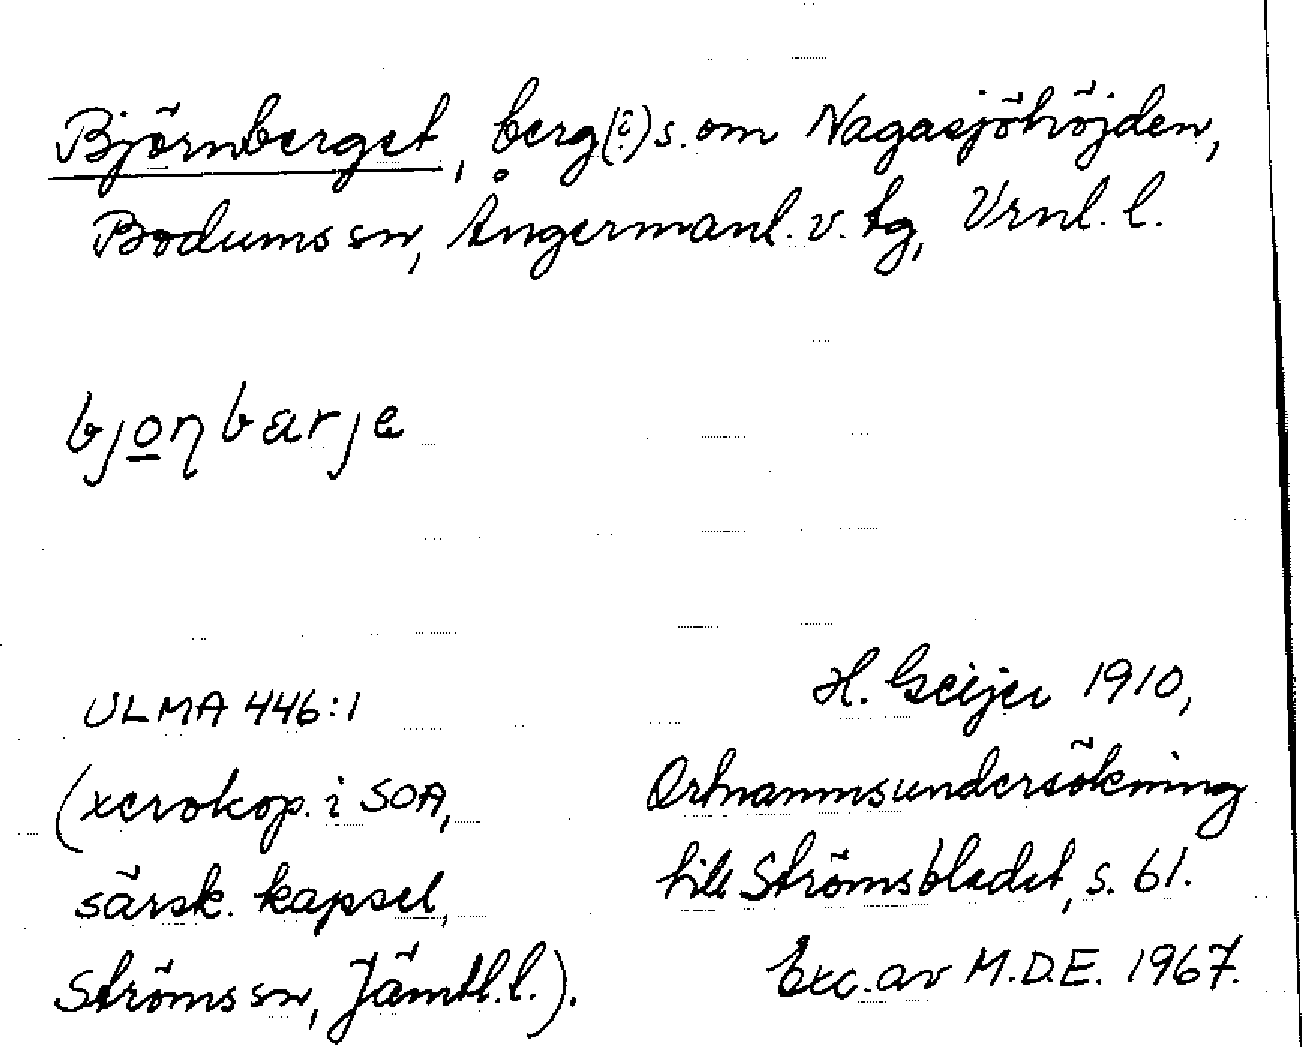 Björnberget, berg(?) s. om Nagasjöhöjden,
Bodums sn, Ångermanl. v. tg, Vrnl. l.
bjo̲ŋbarje
ULMA 446:1
(xerokop. i SOA,
särsk. kapsel,
Ströms sn, Jämtl. l.).
H. Geijer 1910,
Ortnamnsundersökning
till Strömsbladet, s. 61.
Exc. av M.D.E. 1967.